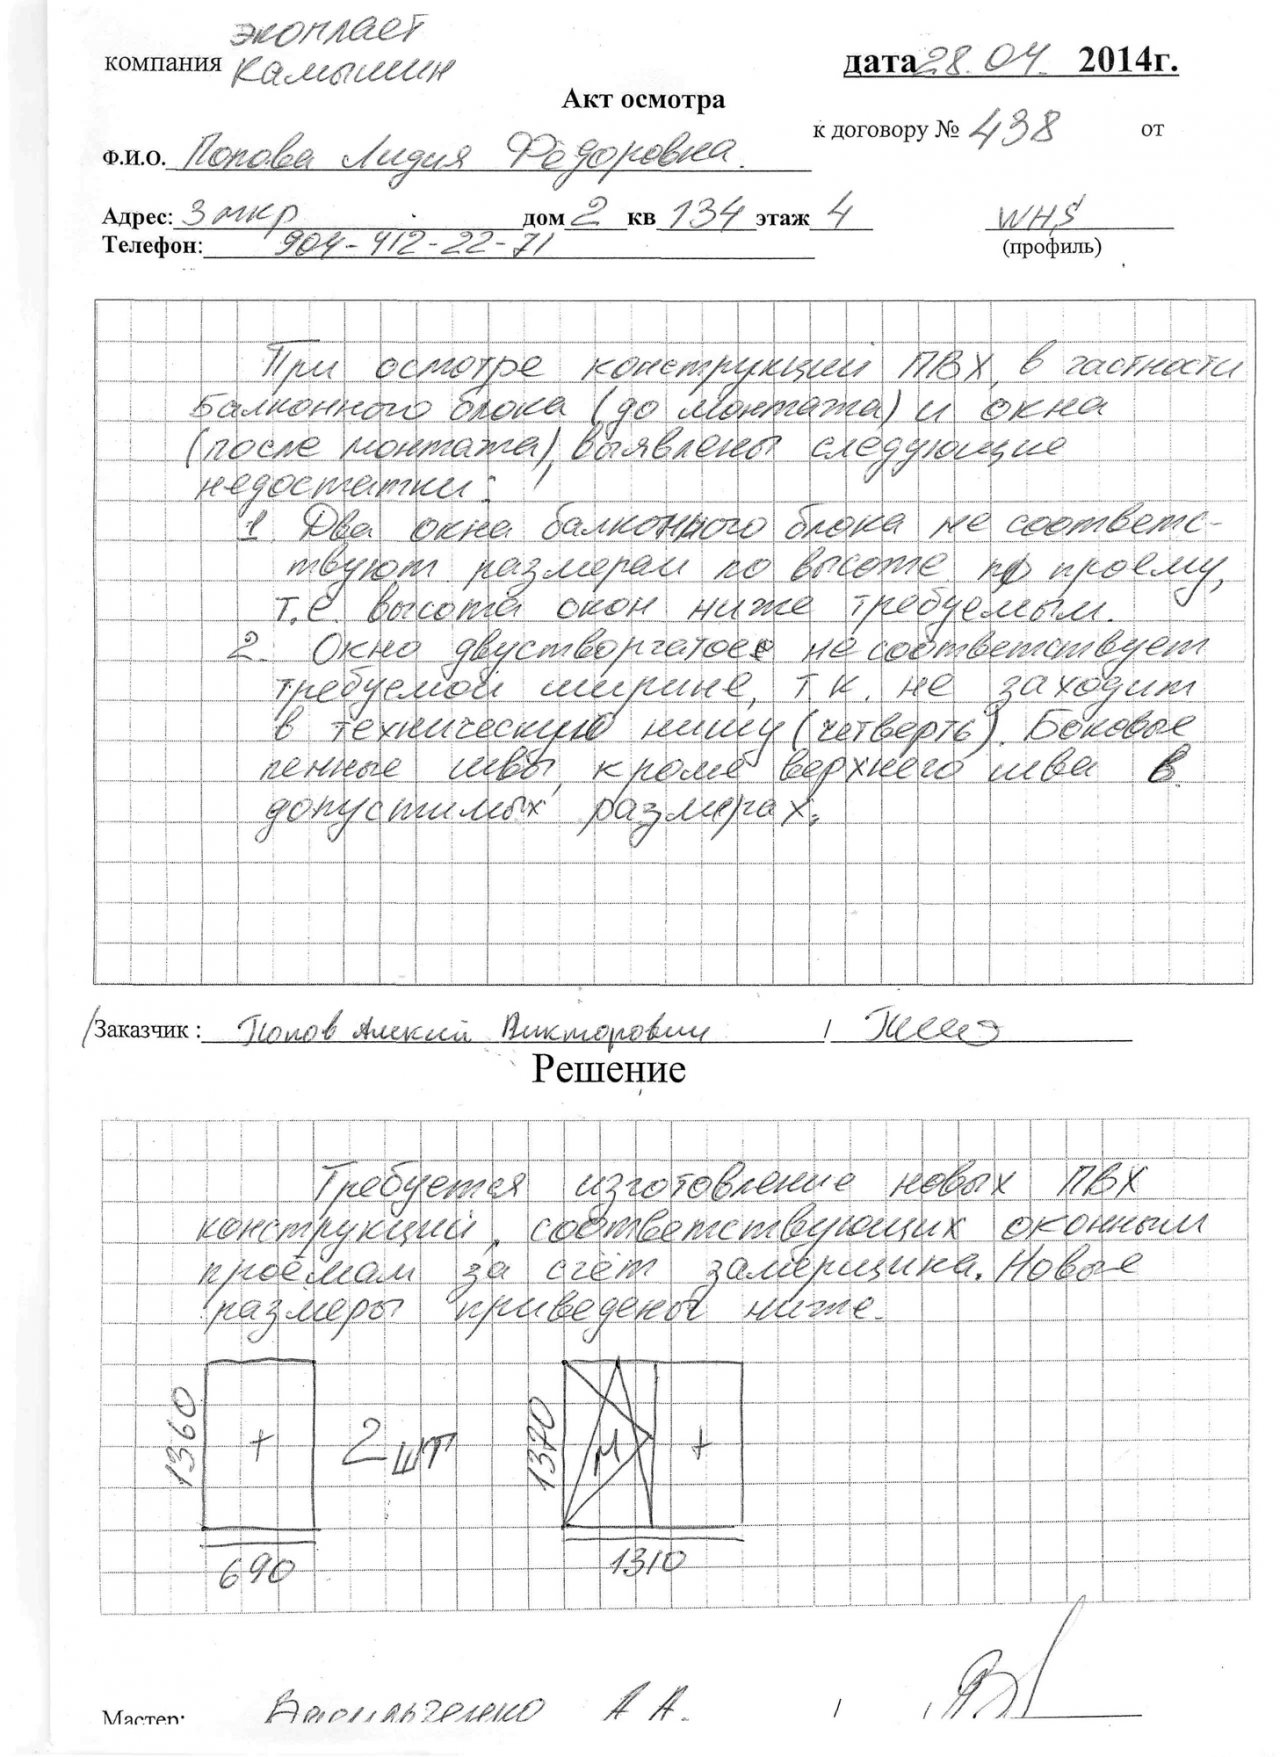 экопласт
компания Камышин
дата 28.04. 2014г.
Акт осмотра
к договору № 438 от
Ф.И.О. Попова Лидия Фёдоровна.
Адрес: 3 мкр дом 2 кв 134 этаж 4 WHS
Телефон: 904-412-22-71 (профиль)
При осмотре конструкций ПВХ, в частности
Балконного блока (до монтажа) и окна
(после монтажа), выявлены следующие
недостатки:
1. Два окна балконного блока не соответс-
твуют размерам по высоте проему,
т.е. высота окон ниже требуемым.
2. Окно двустворчатое не соответствует
требуемой ширине, т.к. не заходит
в техническую нишу (четверть). Боковые
пенные швы, кроме верхнего шва в
допустимых размерах.
Заказчик: Попов Викторович /
Решение
Требуется изготовление новых ПВХ
конструкций, соответствующих оконным
проёмам за счёт замерщика. Новые
размеры приведены ниже.
1360 + 2 шт 1370 М +
690 1310
Мастер: Васильченко А А. /